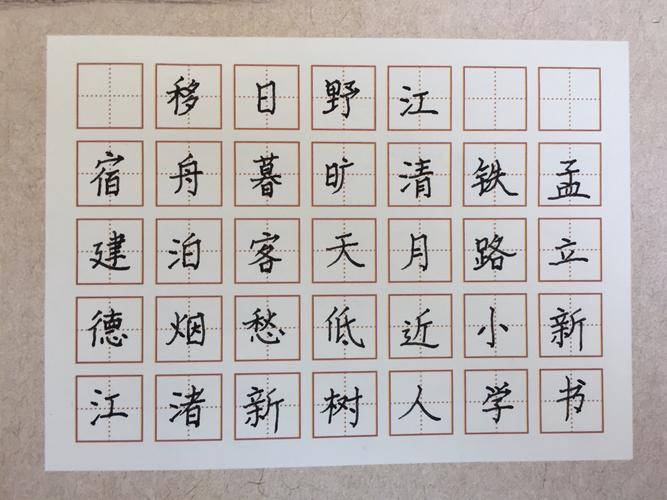 宿建德江
移舟泊烟渚
日暮客愁新
野旷天低树
江清月近人
铁路小学
孟立新书